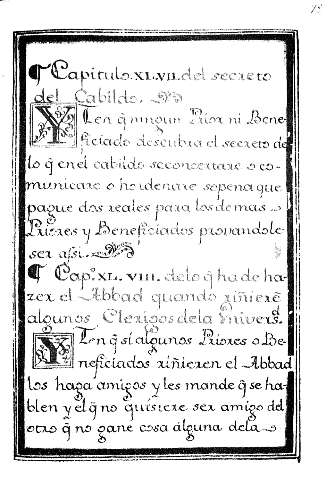 ¶ Capitulo. XL.VII. del secreto
del Cabildo.
YTen q̃ ningun Prior ni Bene-
ficiado descubra el secreto de
lo q̃ en el cabildo se concertare o co-
municare o hordenare so pena que
pague dos reales para los demas
Priores y Beneficiados provandole
ser assi.
¶ Cap.º XL. VIII. de lo q̃ ha de ha-
zer el Abbad quando riñierẽ
algunos Clerigos de la Vniversd.
YTen q̃ si algunos Priores o Be-
neficiados riñieren el Abbad
los haga amigos y les mande q̃ se ha-
blen y el q̃ no quisiere ser amigo del
otro q̃ no gane cosa alguna de la